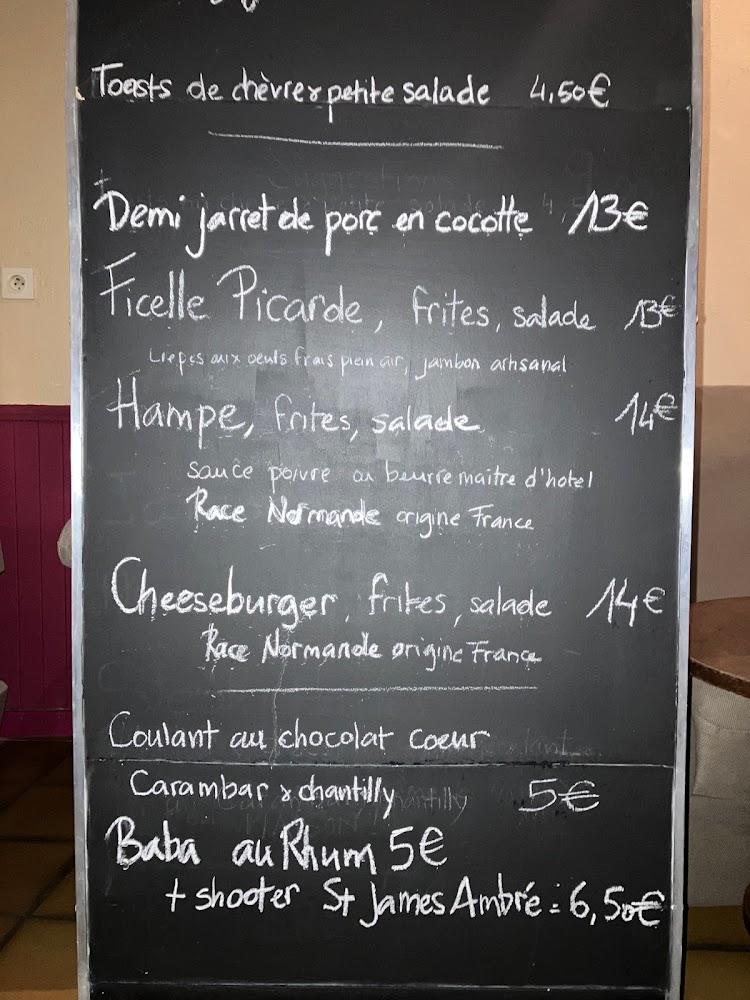 Toasts de chèvre & petite salade 4,50€
Demi jarret de porc en cocotte 13€
Ficelle Picarde, frites, salade 13€
Crêpes aux oeufs frais plein air, jambon artisanal
Hampe, frites, salade 14€
sauce poivre ou beurre maitre d'hotel
Race Normande origine France
Cheeseburger, frites, salade 14€
Race Normande origine France
Coulant au chocolat coeur
Carambar & chantilly 5€
Baba au Rhum 5€
+ shooter St James Ambré : 6,50€